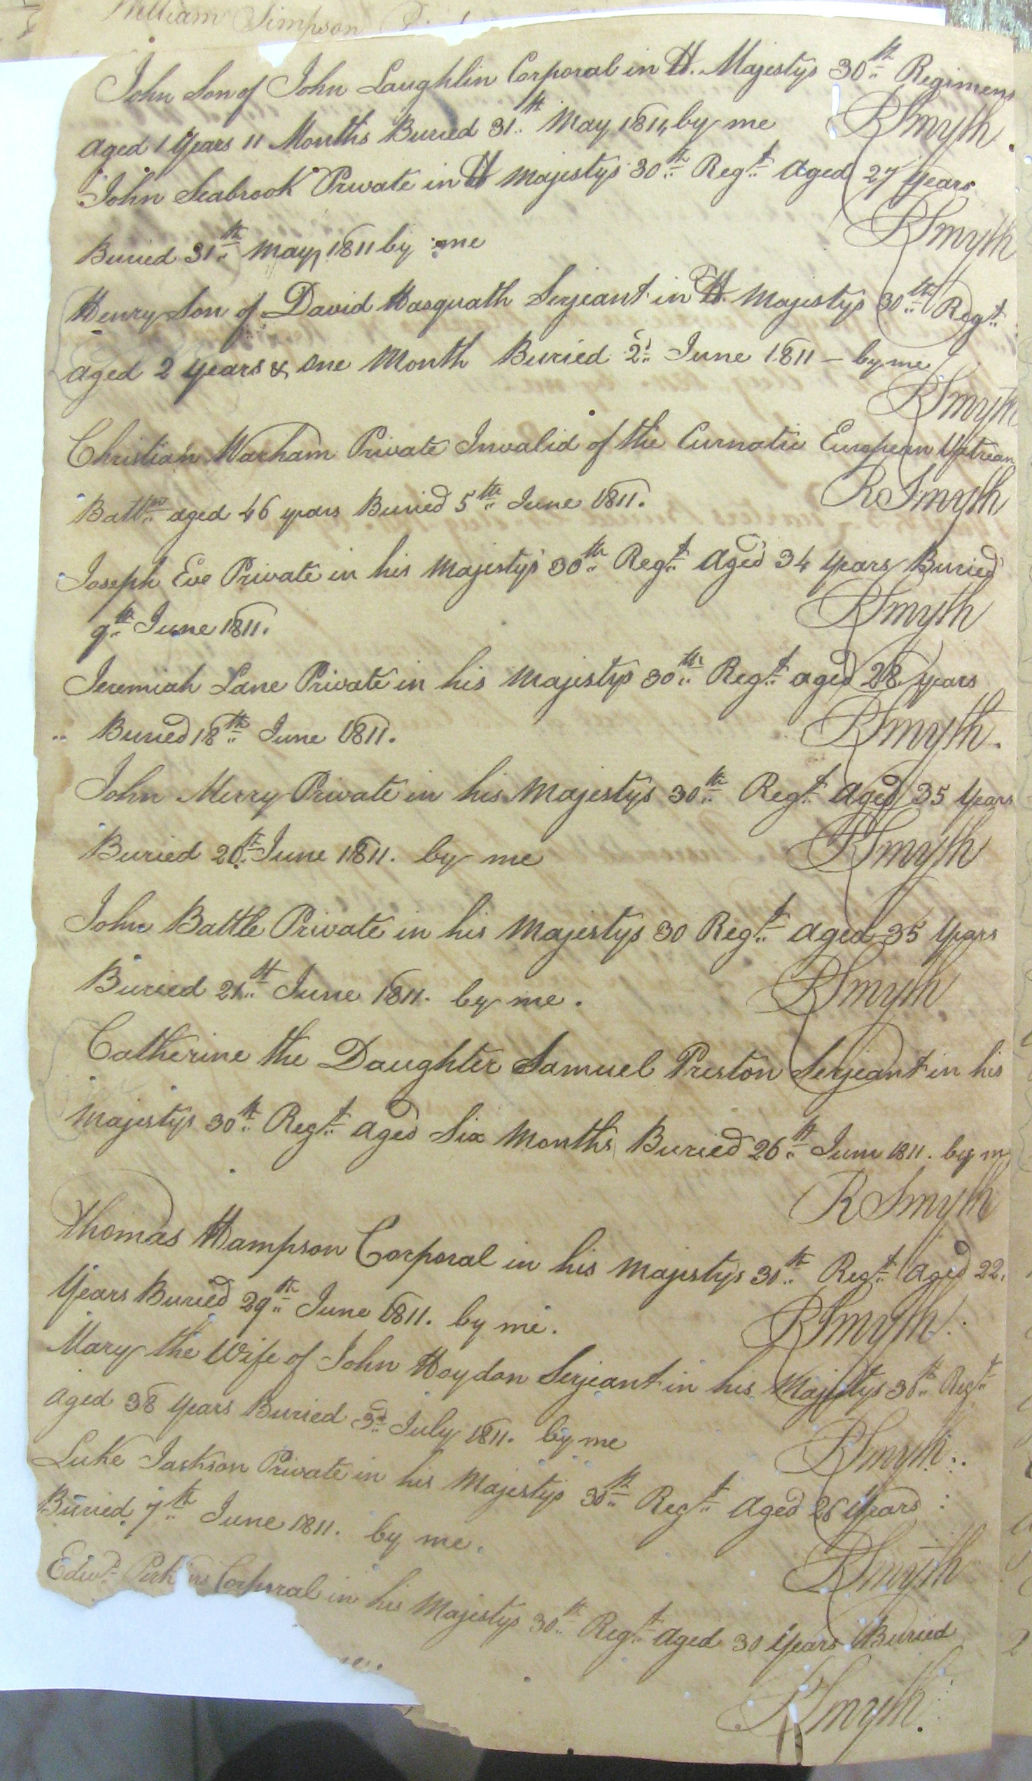 William Simpson
John Son of John Laughlin Corporal in H. Majestys 30th Regiment
aged 1 Years 11 Months Buried 31st May 1811, by me
RSmyth.
John Seabrook Private in H Majestys 30th Regt aged 27 years
Buried 31th May, 1811 by me
RSmyth
Henry Son of David Hasquath Serjeant in H. Majestys 30th Regt
aged 2 years & One Month Buried 2d June 1811 - by me
RSmyth
Christian Warham Private Invalid of the Curnatic European Vetrean
Battn aged 46 years Buried 5th June 1811.
RSmyth
Joseph Eve Private in his Majestys 30th Regt Aged 34 years Buried
9th June 1811.
RSmyth
Jeremiah Lane Private in his Majestys 30th Regt aged 28 years
Buried 18th June 1811.
RSmyth.
John Merry Private in his Majestys 30th Regt aged 35 Years
Buried 20th June 1811. by me
RSmyth
John Battle Private in his Majestys 30 Regt aged 35 Years
Buried 21st June 1811. by me.
RSmyth
Catherine the Daughter Samuel Preston Serjeant in his
Majestys 30th Regt aged Six Months Buried 26th June 1811. by m
RSmyth
Thomas Hampson Corporal in his Majestys 30th Regt aged 22.
Years Buried 29th June 1811. by me.
RSmyth.
Mary the Wife of John Hoydon Serjeant in his Majestys 30th Regt
aged 38 Years Buried 3d July 1811. by me
RSmyth.
Luke Jackson Private in his Majestys 30th Regt Aged 26 Years
Buried 7th June 1811. by me.
RSmyth
Edwd Perkins Corporal in his Majestys 30th Regt aged 30 Years Buried
RSmyth.